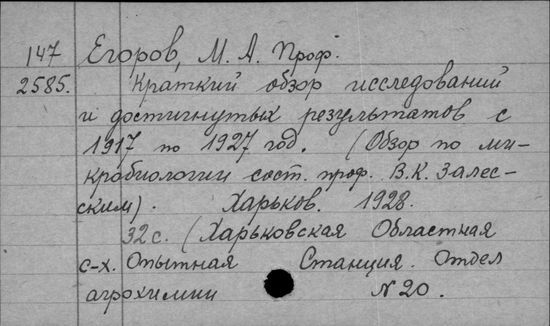 147 Егоров, М. А. Проф.
2585. Краткий обзор исследований
и достигнутых результатов с
1917 по 1927 год. (Обзор по ми-
кробиологии сост. проф. В.К. Залес-
ским). Харьков. 1928.
32 с. (Харьковская Областная
с-х. Опытная Станция. Отдел
агрохимии № 20.